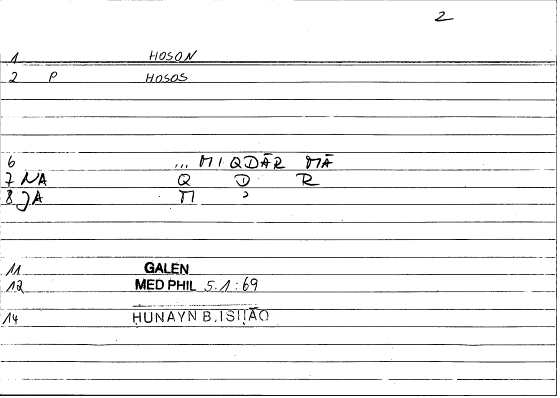 2
1 HOSON
2 P HOSOS
6 ... MIQDĀR MĀ
7 NA Q D R
8 JA M ʾ
11 GALEN
12 MED PHIL 5.1:69
14 ḤUNAYN B. ISḤĀQ